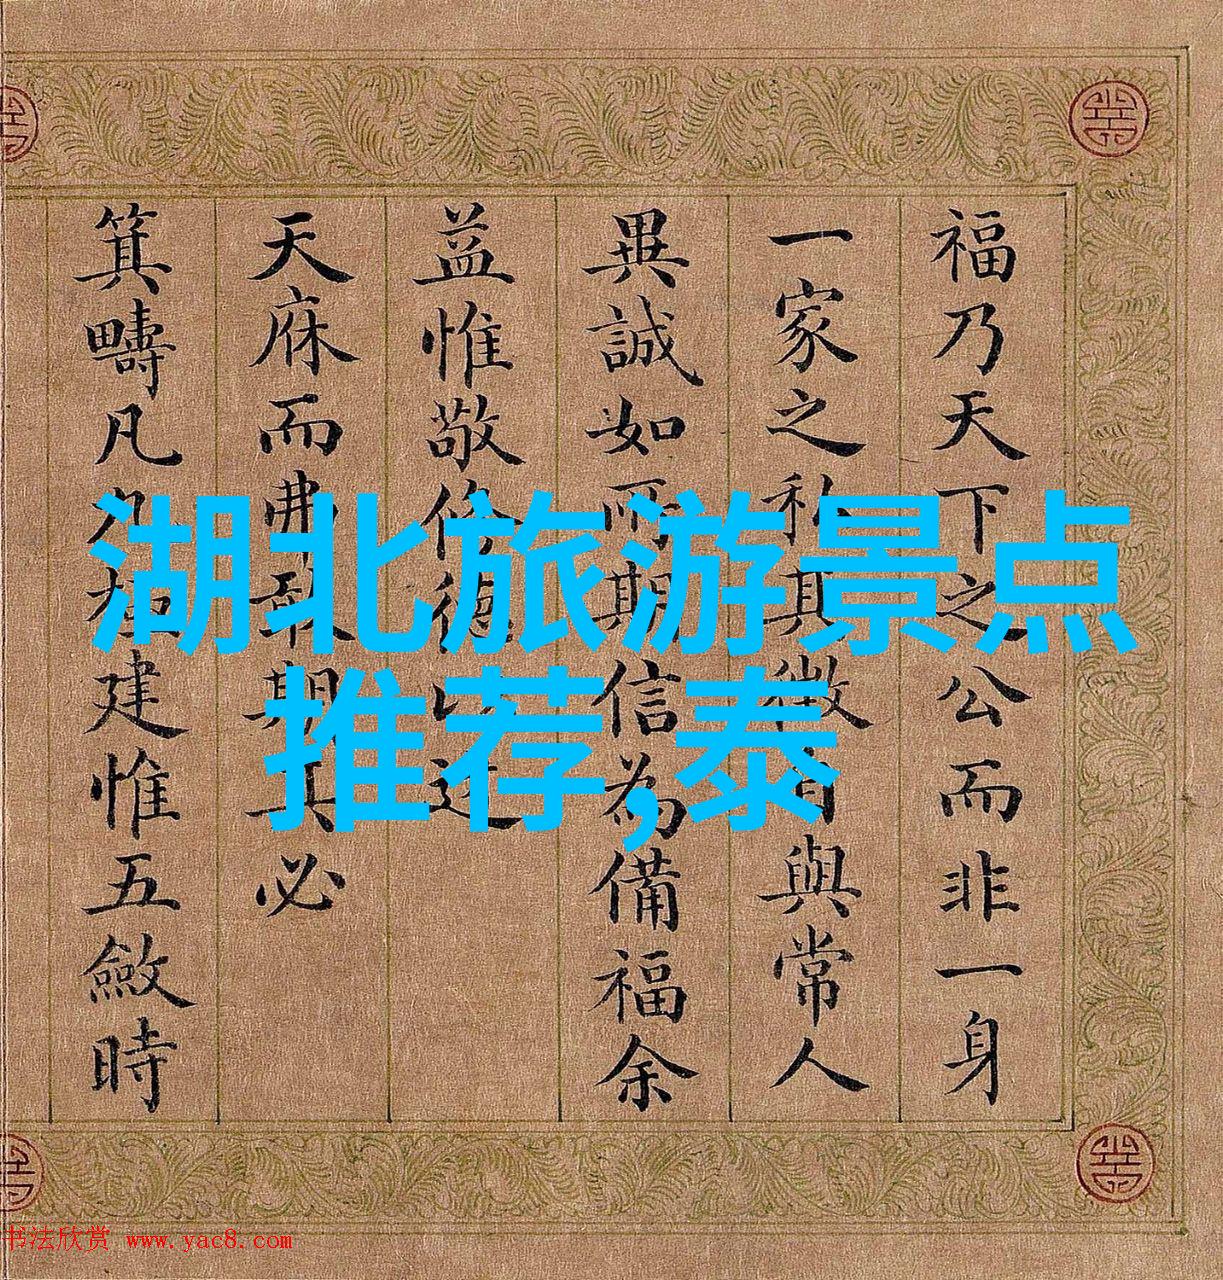 福乃天下之公而非一身
一家之私其徵有與常人
異誠如所期信為備福余
益惟敬修德以迓
天庥而弗敢期其必
箕疇凡九極建惟五斂時
湖北旅游景点
推荐,泰
书法欣赏 www.yac8.com